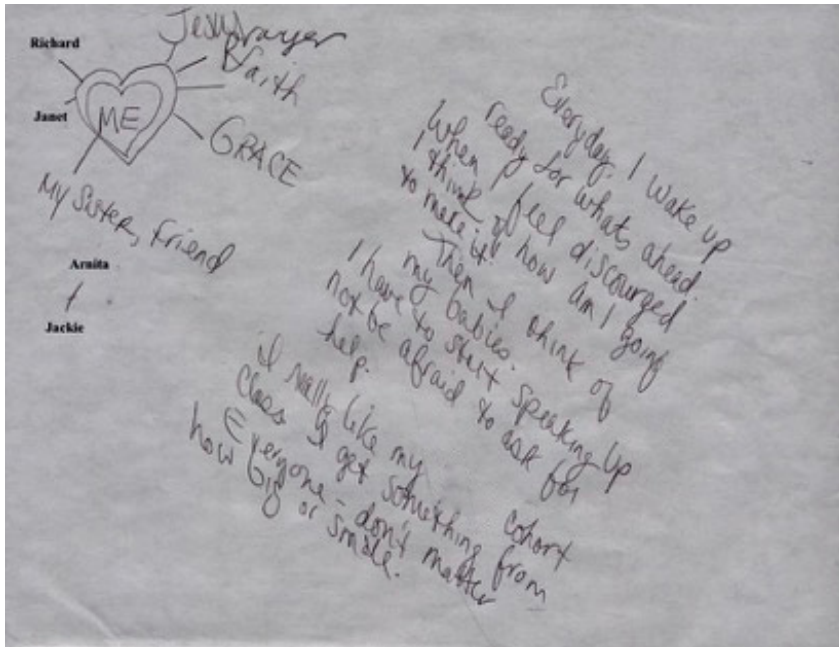 Richard
Jesus
Prayer
Faith
Janet
ME
GRACE
My Sister, Friend
Arnita
Jackie
Everyday. I wake up
ready for whats ahead.
When I feel discourged
I think of how am I going
to make it.
Then I think of
my babies.
I have to start speaking up
not be afraid to ask for
help.
I really like my cohort
class I get something from
Everyone - don't matter
how big or small.